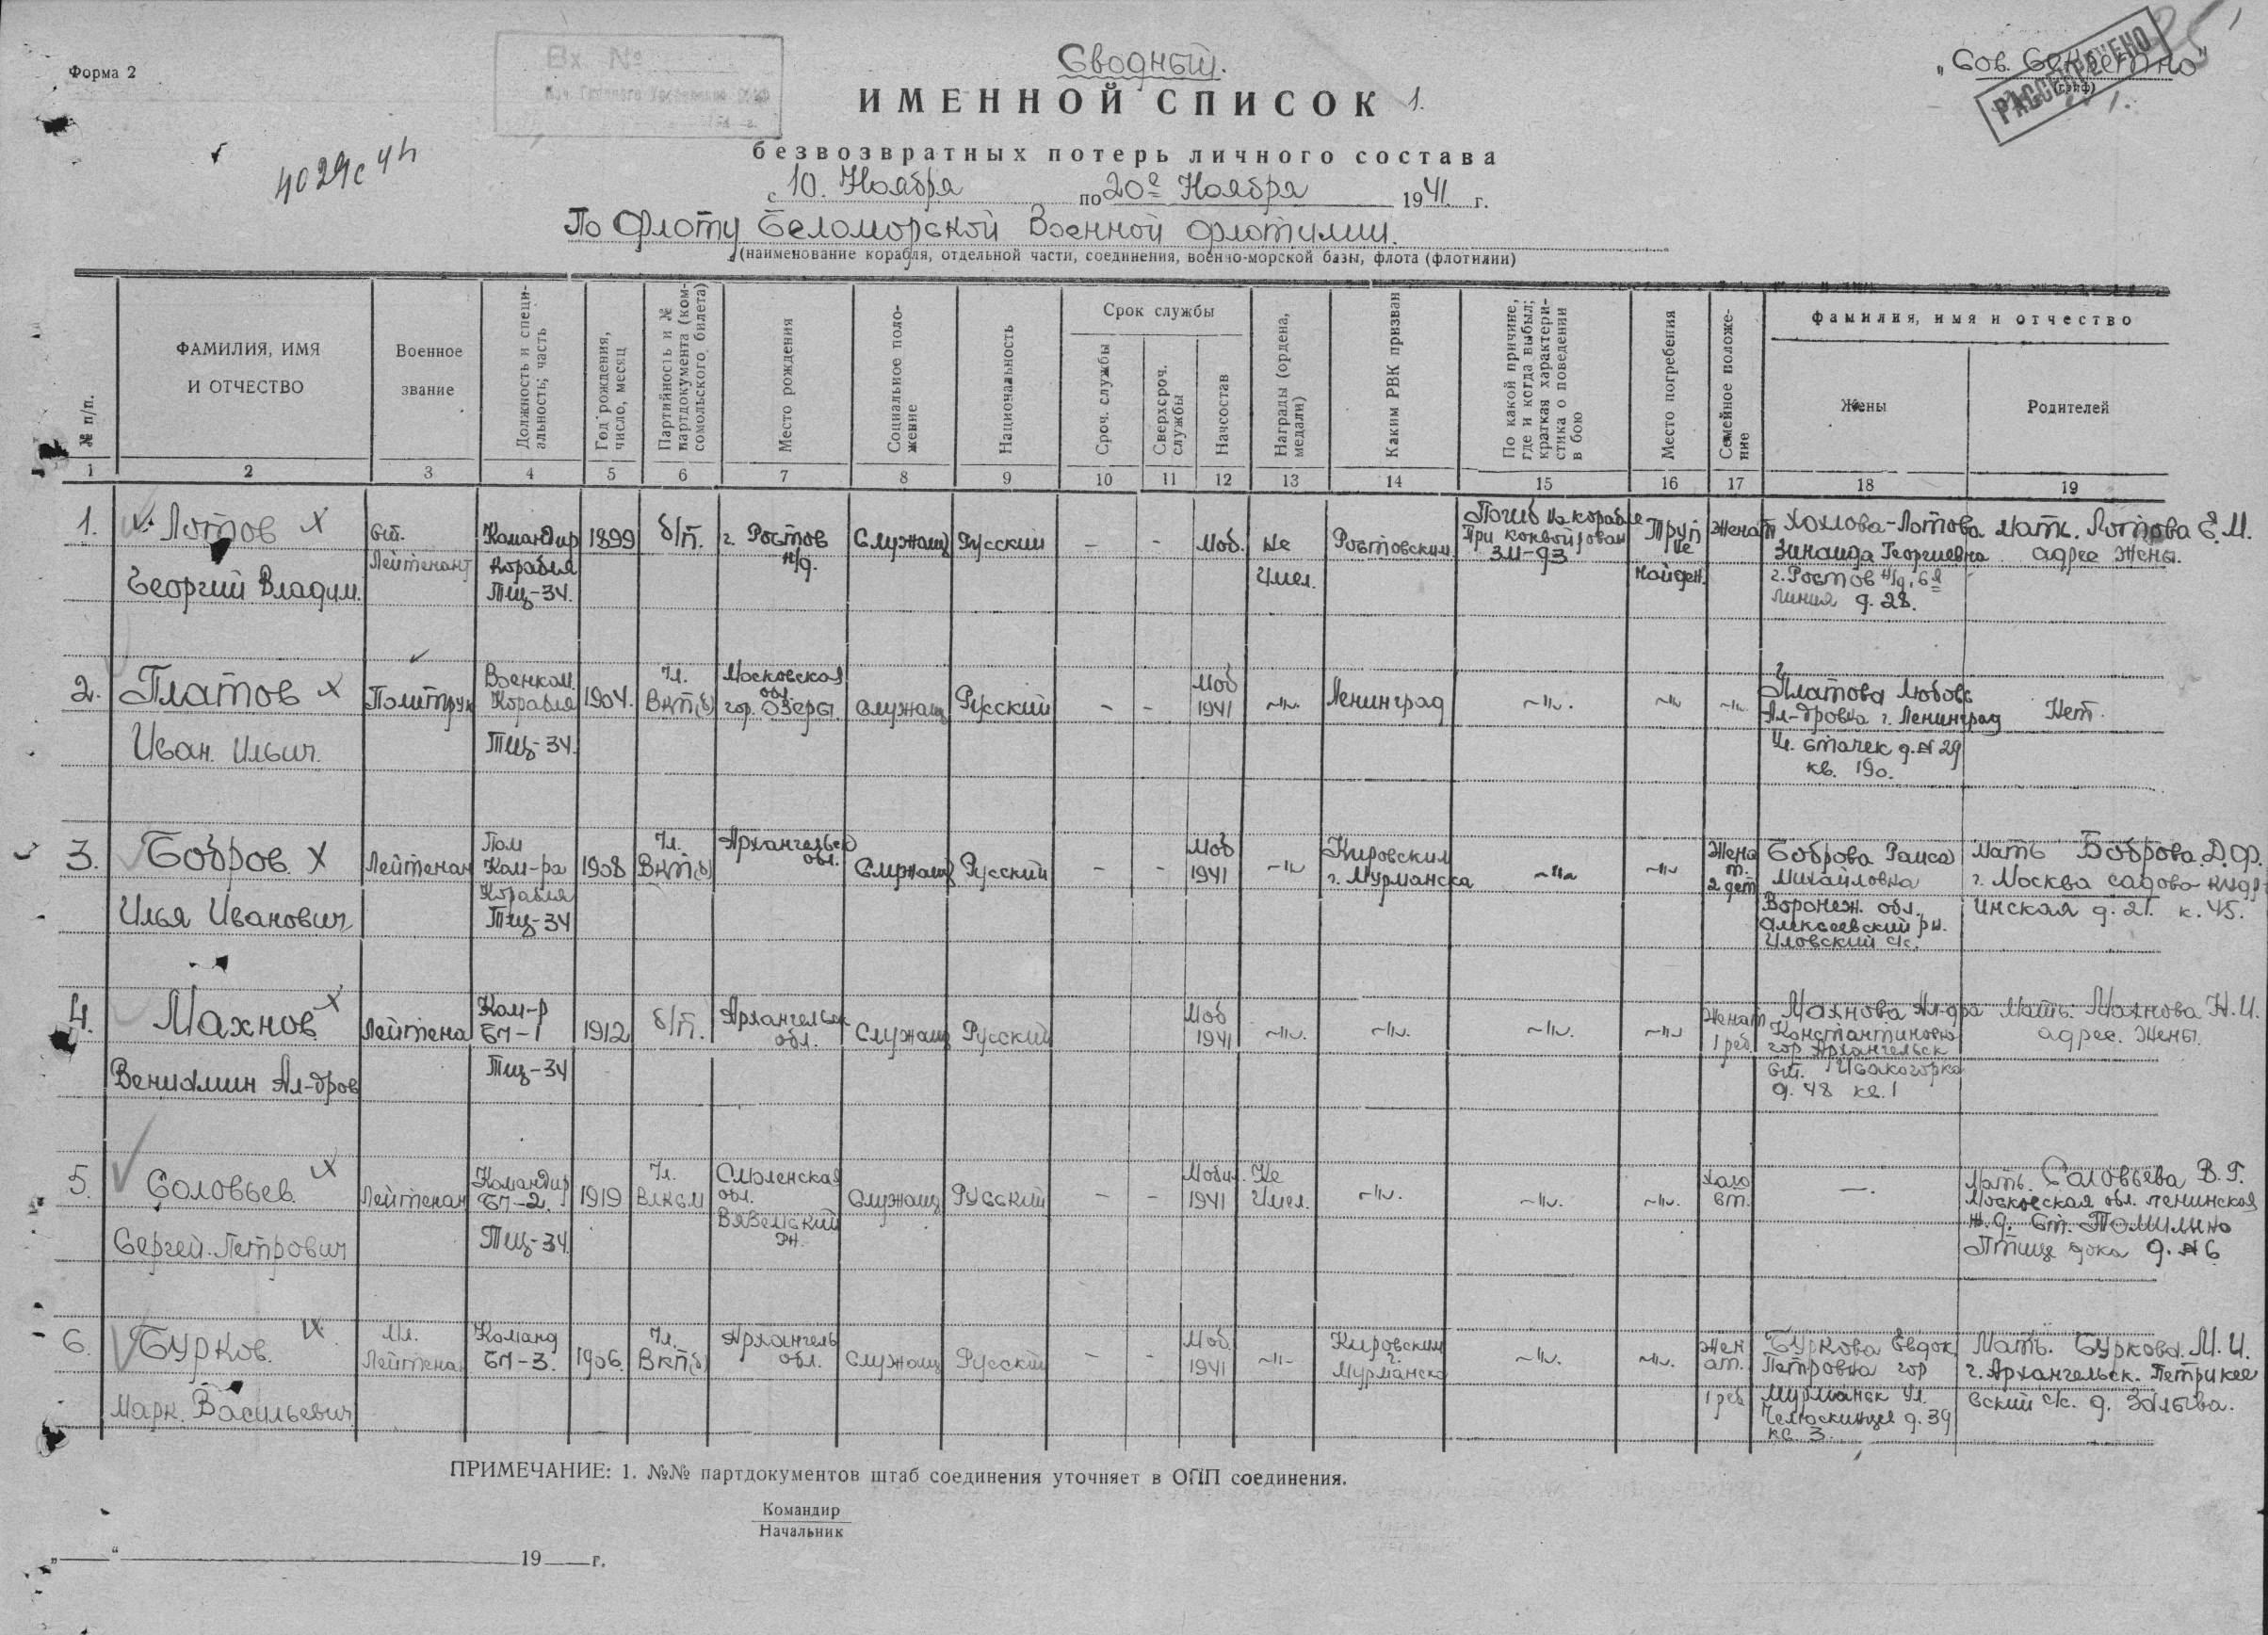 Форма 2
Вх. №
Сводный.
„Сов. Секретно"
(гриф)
РАССЕКРЕЧЕНО
ИМЕННОЙ СПИСОК 1.
безвозвратных потерь личного состава
с 10. Ноября по 20е Ноября 1941 г.
По Флоту Беломорской Военной Флотилии.
(наименование корабля, отдельной части, соединения, военно-морской базы, флота (флотилии)
№ п/п.
ФАМИЛИЯ, ИМЯ
И ОТЧЕСТВО
Военное
звание
Должность и специ-
альность, часть
Год рождения,
число, месяц
Партийность и №
партдокумента (ком-
сомольского билета)
Место рождения
Социальное поло-
жение
Национальность
Срок службы
Сроч. службы
Сверхсроч.
службы
Начсостав
Награды (ордена,
медали)
Каким РВК призван
По какой причине,
где и когда выбыл;
краткая характери-
стика о поведении
в бою
Место погребения
Семейное положе-
ние
фамилия, имя и отчество
Жены
Родителей
1 2 3 4 5 6 7 8 9 10 11 12 13 14 15 16 17 18 19
1.
Лотов х
Георгий Владим.
Ст.
Лейтенант
Командир
Корабля
Тщ-34.
1899
б/п.
г. Ростов
н/д.
Служащ
Русский
-
-
Моб.
не
Имел.
Ростовским
Погиб на корабле
При конвоирован
ЗМ-93
Труп
не
найден.
Женат
Хохлова-Лотова
Зинаида Георгиевна
г. Ростов н/д. 6я
линия д. 28.
Мать. Лотова Е.М.
адрес жены.
2.
Платов х
Иван. Ильич.
Политрук
Военком.
Корабля
Тщ-34.
1904.
Чл.
ВКП(б)
Московская
обл.
гор. Озеры.
Служащ
Русский
-
-
Моб
1941
~"~
Ленинград
~"~.
~"~
~"~
Платова Любовь
Ал-дровна г. Ленинград
Ул. Стачек д. № 29
кв. 190.
Нет.
3.
Бобров. х
Илья Иванович
Лейтенан
Пом
Ком-ра
Корабля
Тщ-34
1908
Чл.
ВКП(б)
Архангельск
обл.
Служащ
Русский
-
-
Моб
1941
~"~
Кировским
г. Мурманска
~"~
~"~
Жена
т.
2 дет
Боброва Раиса
Михайловна
Воронеж. обл.
Алексеевский рн.
Иловский с/с.
Мать Боброва Д.Ф.
г. Москва садово-кудр-
инская д. 21. к. 45.
4.
Махнов х
Вениамин Ал-дров
Лейтена
Ком-р
БЧ-1
Тщ-34
1912
б/п.
Архангельск
обл.
Служащ
Русский
Моб
1941
~"~.
~"~.
~"~.
~"~
Женат
1 реб.
Махнова Ал-дра
Константиновна
гор Архангельск
ст. Исакогорка
д. 48 кв. 1
Мать: Махнова Н.И.
адрес. Жены.
5.
Соловьев. х
Сергей. Петрович
Лейтенан
Командир
БЧ-2.
Тщ-34
1919
Чл.
ВЛКСМ
Смоленская
обл.
Вяземский
рн.
Служащ
Русский
-
-
Мобил.
1941
Не
Имел.
~"~.
~"~.
~"~.
Холо
ст.
-.
Мать. Соловьева В.Г.
Московская обл. Ленинская
ж.д. ст. Томилино
д. № 6
6.
Бурков. х
Марк. Васильевич
Мл.
Лейтенан
Команд
БЧ-3.
1906.
Чл.
ВКП(б)
Архангель
обл.
Служащ
Русский
-
-
Моб.
1941
~"~
Кировским
г.
Мурманска
~"~.
~"~.
Жен
ат.
1 реб
Буркова Евдок.
Петровна гор
Мурманск ул.
Челюскинцев д. 39
кв. 3.
Мать. Буркова. М.И.
г. Архангельск.
вский с/с. д.
ПРИМЕЧАНИЕ: 1. №№ партдокументов штаб соединения уточняет в ОПП соединения.
Командир
Начальник
„ “ 19 г.